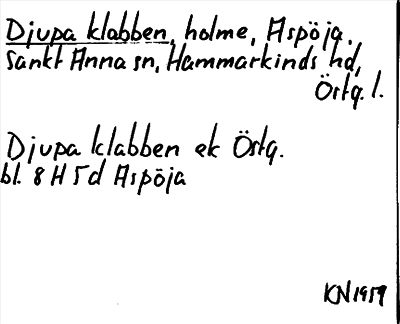 Djupa klabben, holme, Aspöja.
Sankt Anna sn, Hammarkinds hd,
Östg. l.
Djupa klabben ek Östg.
bl. 8 H 5 d Aspöja
KN 1959